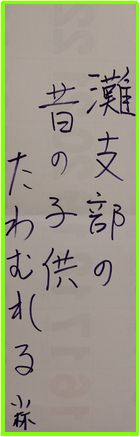 灘支部の
昔の子供
たわむれる